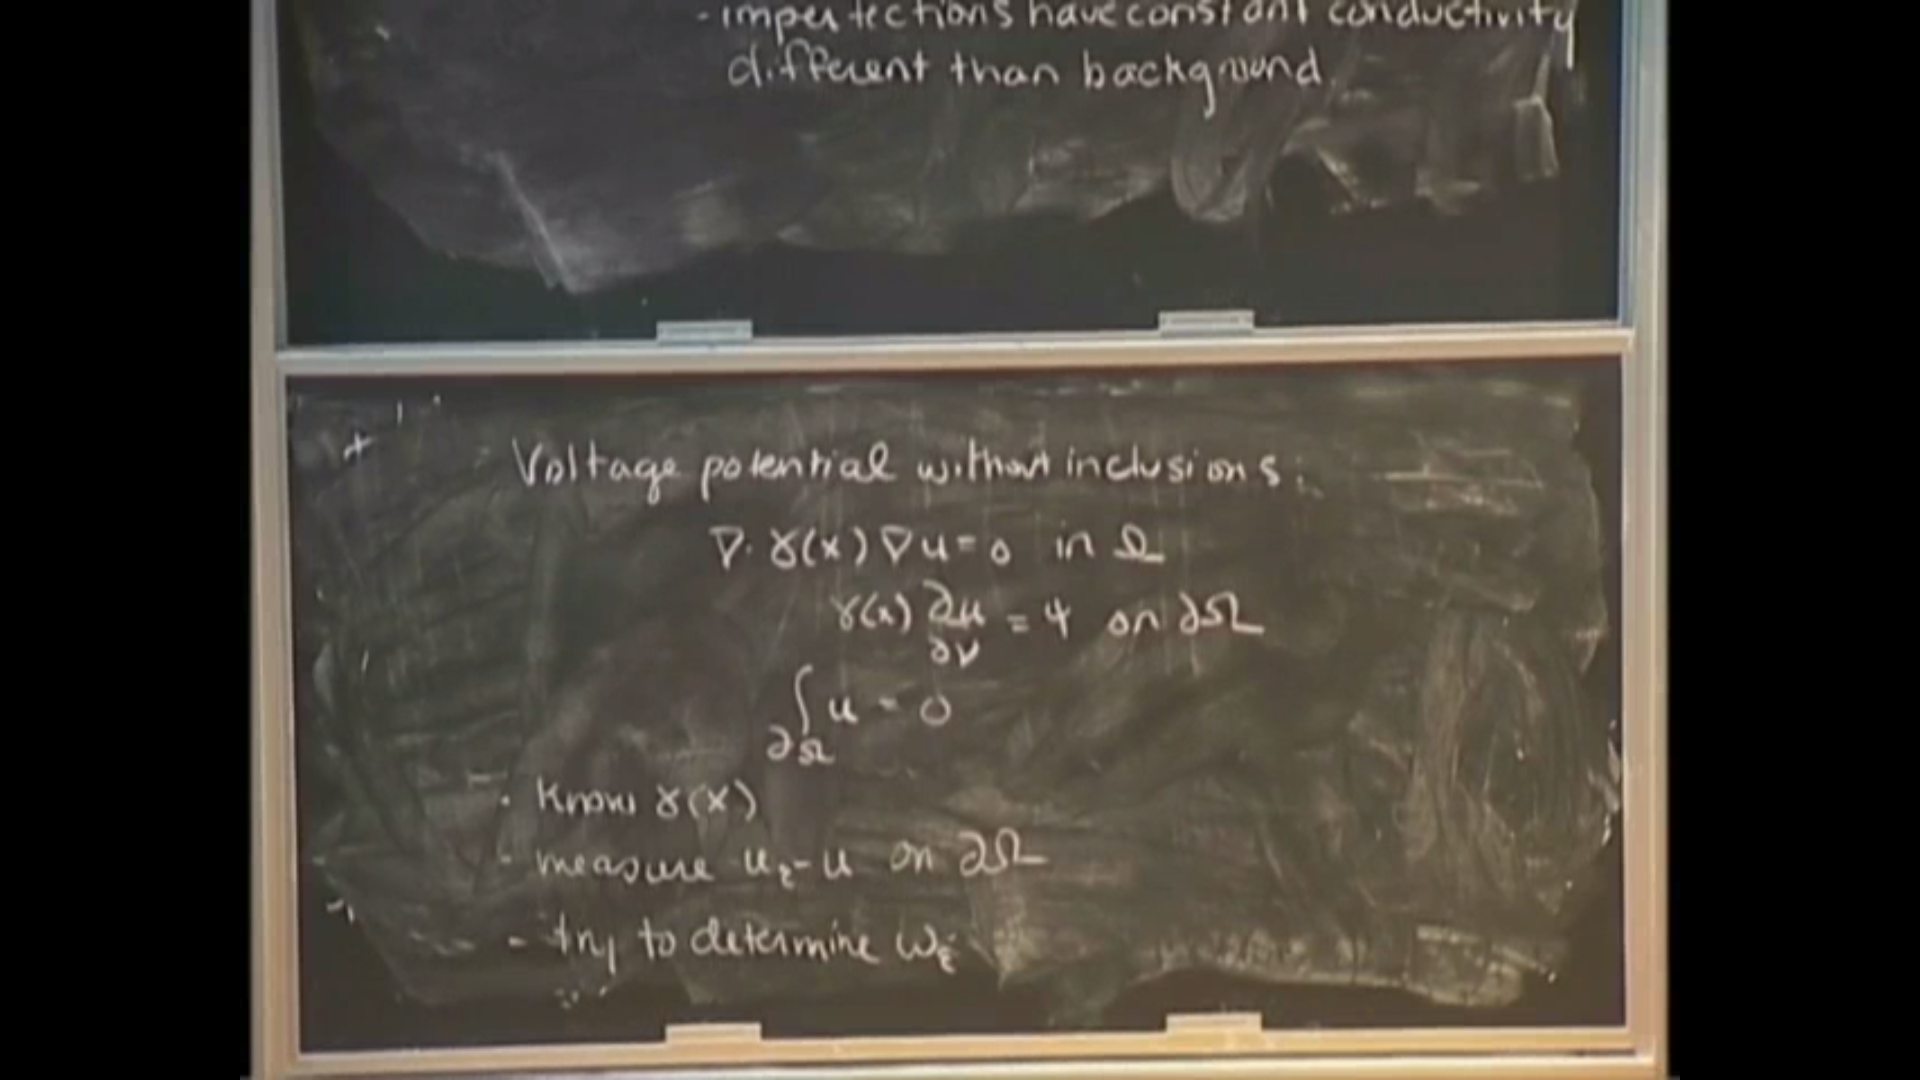 - imperfections have constant conductivity
different than background.
Voltage potential without inclusions:
∇· γ(x) ∇u = 0 in Ω
γ(x) ∂u/∂ν = ψ on ∂Ω
∫_∂Ω u = 0
- Know γ(x)
- measure u_ε - u on ∂Ω
- try to determine ω_ε